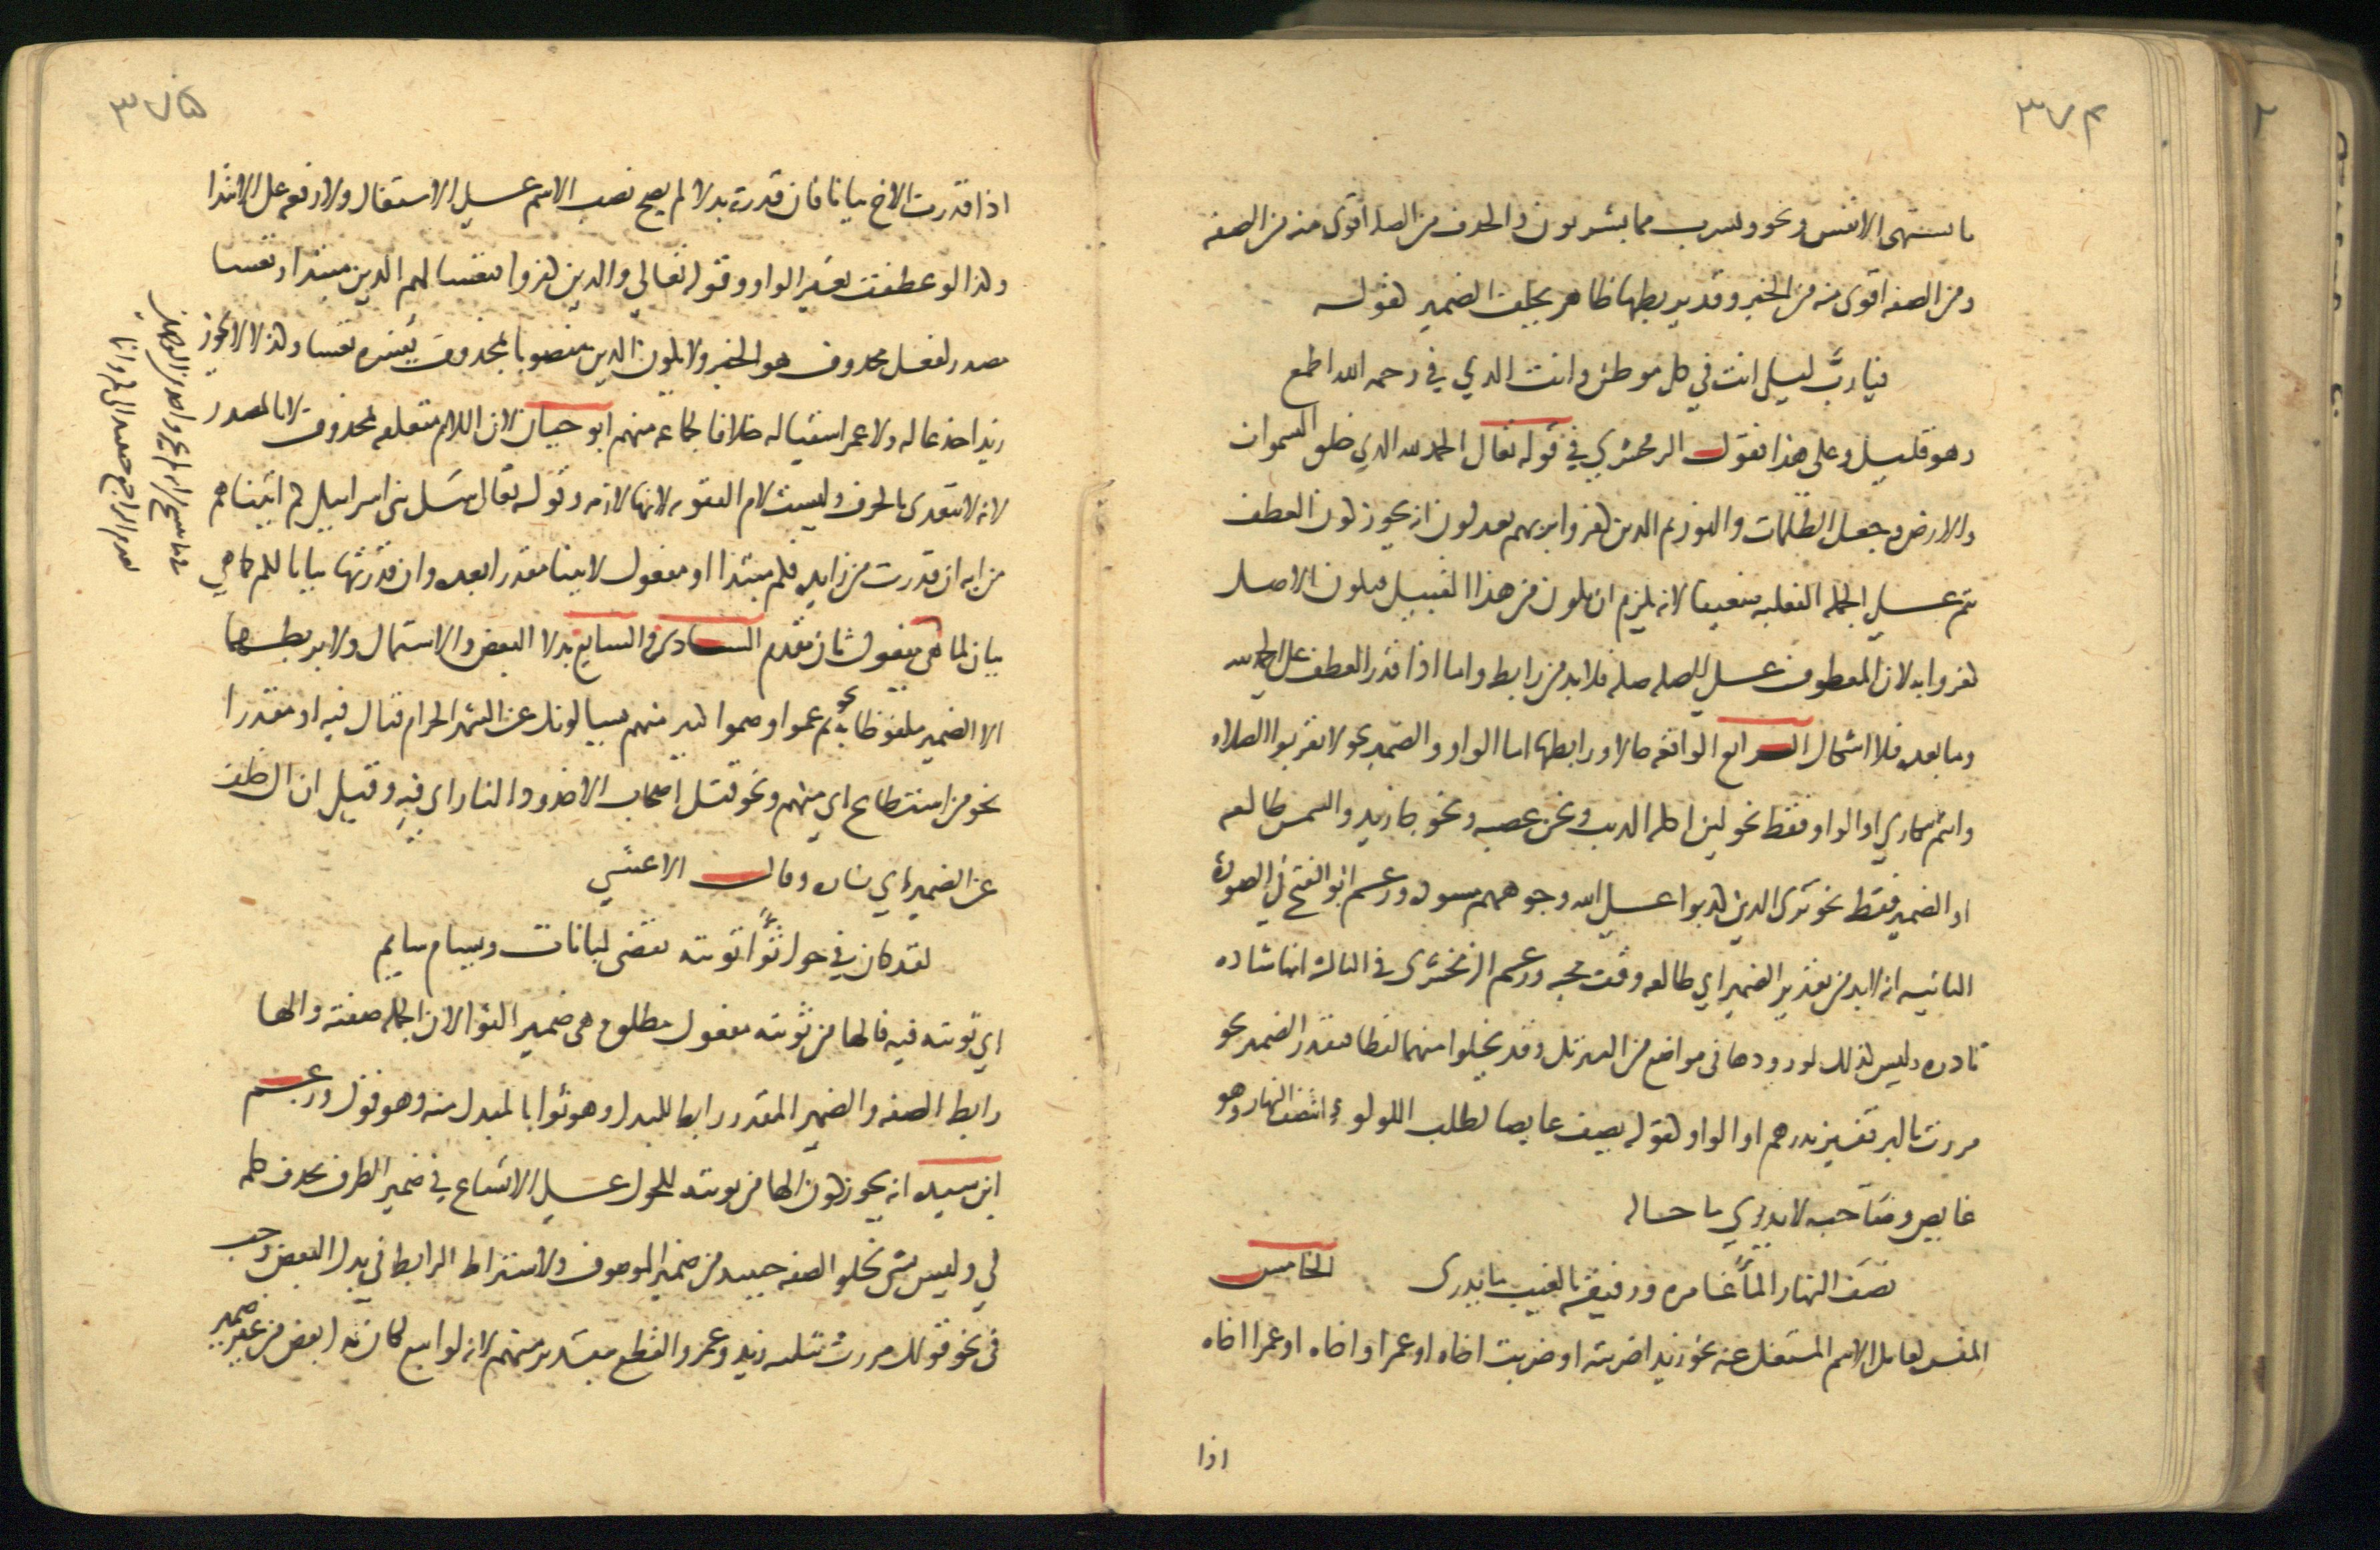 ٣٧٤
ما تشتهي الانفس ونحو ويشرب مما يشربون والحذف من الصله اقوى منه من الصفه
ومن الصفه اقوى منه من الخبر وقد يربطها ظاهر يخلف الضمير كقوله
فيا ربَّ ليلى انت في كل موطن وانت الذي في رحمه الله اطمع
وهو قليل وعلى هذا فقول الزمخشري في قوله تعالى الحمد لله الذي خلق السموات
والارض وجعل الظلمات والنور ثم الذين كفروا بربهم يعدلون انه يجوز كون العطف
بثم على الجمله الفعليه ضعيفا لانه يلزم ان يكون من هذا القبيل فيكون الاصل
كفروا به لان المعطوف على الصله صله فلا بد من رابط واما اذا قدر العطف على الحمد لله
وما بعده فلا اشكال الرابع الواقعه حالا ورابطها اما الواو والضمير نحو لا تقربوا الصلاه
وانتم سكارى او الواو فقط نحو لين اكله الذيب ونحن عصبه ونحو جا زيد والشمس طالعه
او الضمير فقط نحو ترى الذين كذبوا على الله وجوههم مسوده وزعم ابو الفتح في الصوره
الثانيه انه لا بد من تقدير الضمير اي طالعه وقت مجيه وزعم الزمخشرى في الثالثه انها شاذه
نادره وليس كذلك لورودها في مواضع من التنزيل وقد يخلوا منهما لفظا فيقدر الضمير نحو
مررت بالبر قفيز بدرهم او الواو كقوله يصف غايصا لطلب اللولوء انتصف النهار وهو
غايص وصاحبه لا يدري ما حاله
نصف النهار المآ غامره ورفيقه بالغيب ما يدرى الخامس
المفسره لعامل الاسم المشتغل عنه نحو زيدا ضربته او ضربت اخاه او عمرا واخاه او عمرا اخاه
اذا
٣٧٥
اذا قدرت الاخ بيانا فان قدرته بدلا لم يصح نصب الاسم على الاشتغال ولا رفعه على الابتدا
وكذا لو عطفت بغير الواو وقوله تعالي والذين كفروا فتعسا لهم الذين مبتدا وتعسا
مصدر لفعل محذوف هو الخبر ولا يكون الذين منصوبا بمحذوف يفسره تعسا وكذا لا يجوز
زيدا جدعا له ولا عمرا سقيا له خلافا لجماعه منهم ابو حيان لان اللام متعلقه بمحذوف لا بالمصدر
لانه لا يتعدى بالحرف وليست لام التقويه لانها لازمه وقوله تعالى سل بني اسراييل كم اتيناهم
من ايه ان قدرت من زايده فكم مبتدا او مفعول لاتينا مقدرا بعده وان قدرتها بيانا لكم كما هي
بيان لما في مفعول ثان مقدم السادس والسابع بدلا البعض والاشتمال ولا يربطهما
الا الضمير ملفوظا به نحو ثم عموا وصموا كثير منهم يسيالونك عن الشهر الحرام قتال فيه او مقدرا
نحو من استطاع اي منهم ونحو قتل اصحاب الاخدود النار اى فيه وقيل ان ال خلف
عن الضمير اي ناره وقال الاعشي
لقد كان في حول ثوآء ثويته تقضى لبانات ويسام سايم
اي ثويته فيه فالها من ثويته مفعول مطلق وهى ضمير الثوا لان الجمله صفته والها
رابط الصفه والضمير المقدر رابط للبدل وهو ثوا بالمبدل منه وهو حول وزعم
ابن سيده انه يجوز كون الها من ثويته للحول على الاتساع في ضمير الظرف بحذف كلمه
في وليس بشى لخلو الصفه حينيذ من ضمير الموصوف ولاشتراط الرابط في بدل البعض وجب
فى نحو قولك مررت بثلثه زيد وعمرو القطع بتقدير منهم لانه لو اتبع لكان بدل بعض من غير ضمير